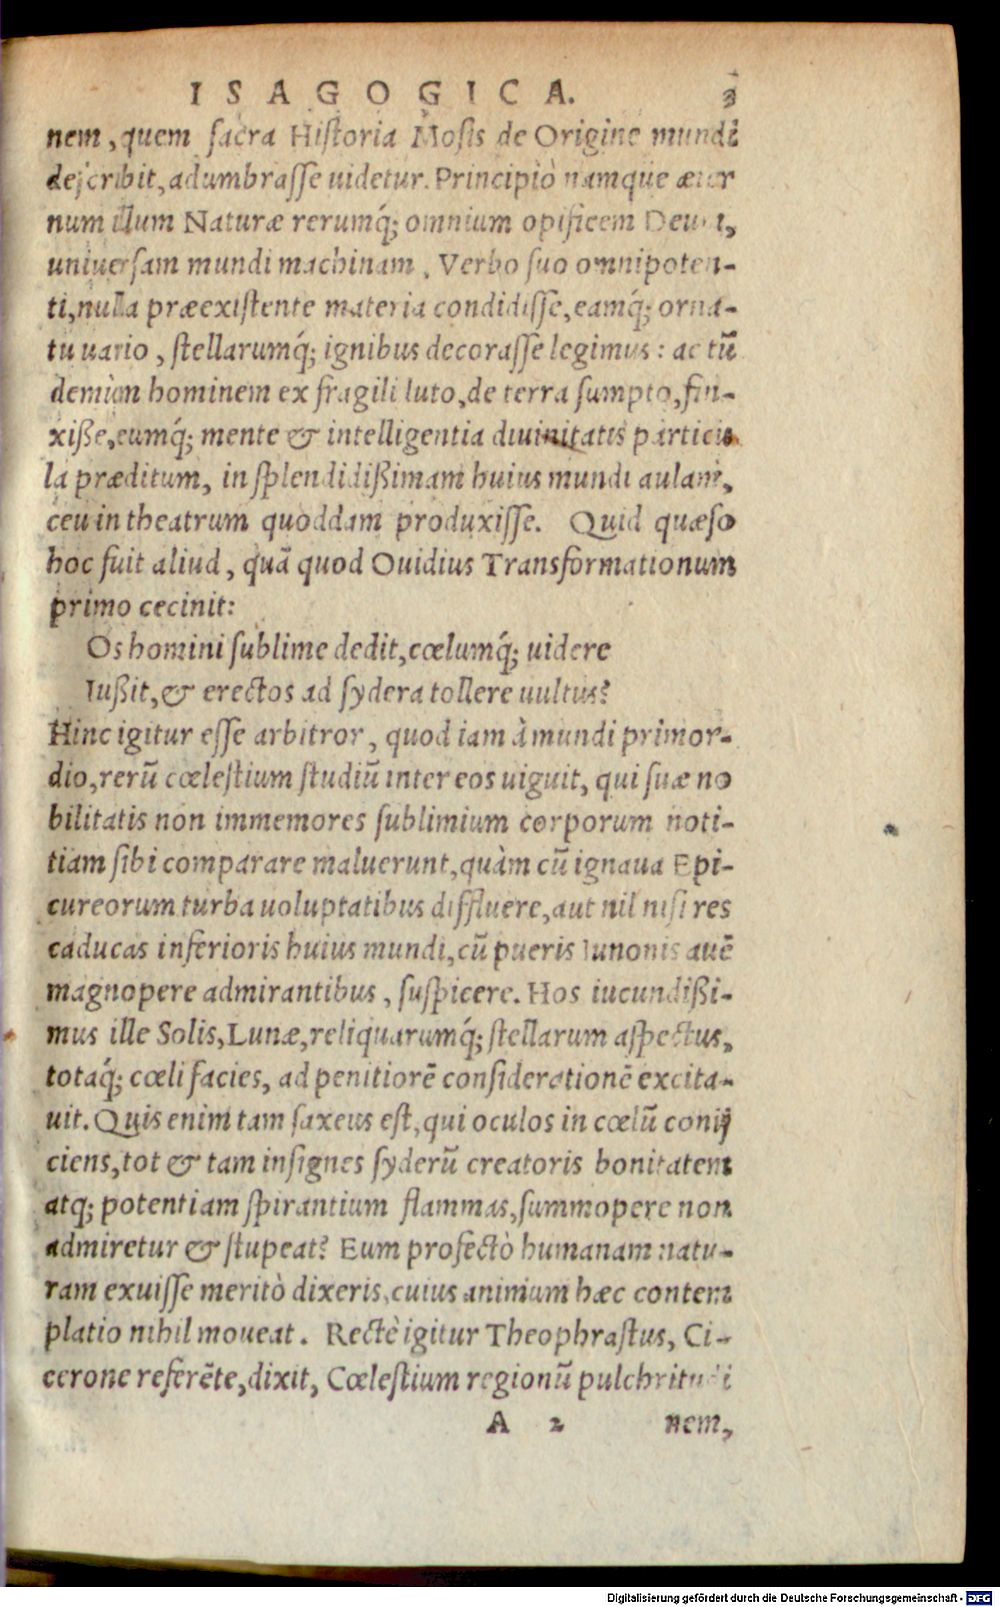 ISAGOGICA. 3
nem, quem sacra Historia Mosis de Origine mundi
describit, adumbrasse uidetur. Principiò namque æter
num illum Naturæ rerumq́; omnium opificem Deum,
uniuersam mundi machinam, Verbo suo omnipoten-
ti, nulla præexistente materia condidisse, eamq́; orna-
tu uario, stellarumq́; ignibus decorasse legimus: ac tū
demùm hominem ex fragili luto, de terra sumpto, fin-
xiße, eumq́; mente & intelligentia diuinitatis particu
la præditum, in splendidißimam huius mundi aulam,
ceu in theatrum quoddam produxisse. Quid quæso
hoc fuit aliud, quā quod Ouidius Transformationum
primo cecinit:
Os homini sublime dedit, cœlumq́; uidere
Iußit, & erectos ad sydera tollere uultus?
Hinc igitur esse arbitror, quod iam à mundi primor-
dio, rerū cœlestium studiū inter eos uiguit, qui suæ no
bilitatis non immemores sublimium corporum noti-
tiam sibi comparare maluerunt, quàm cū ignaua Epi-
cureorum turba uoluptatibus diffluere, aut nil nisi res
caducas inferioris huius mundi, cū pueris Iunonis auē
magnopere admirantibus, suspicere. Hos iucundißi-
mus ille Solis, Lunæ, reliquarumq́; stellarum aspectus,
totaq́; cœli facies, ad penitiorē considerationē excita-
uit. Quis enim tam saxeus est, qui oculos in cœlū conij
ciens, tot & tam insignes syderū creatoris bonitatem
atq; potentiam spirantium flammas, summopere non
admiretur & stupeat? Eum profectò humanam natu-
ram exuisse meritò dixeris, cuius animum hæc contem
platio nihil moueat. Rectè igitur Theophrastus, Ci-
cerone referēte, dixit, Cœlestium regionū pulchritudi
A 2 nem,
Digitalisierung gefördert durch die Deutsche Forschungsgemeinschaft - DFG